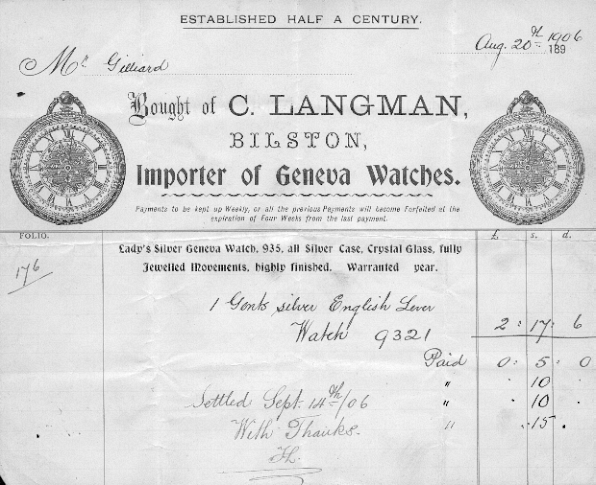 ESTABLISHED HALF A CENTURY.
Aug. 20th 1906
189
Mr Gilliard
Bought of C. LANGMAN,
BILSTON,
Importer of Geneva Watches.
Payments to be kept up Weekly, or all the previous Payments will become Forfeited at the
expiration of Four Weeks from the last payment.
FOLIO. £ s. d.
Lady's Silver Geneva Watch, 935, all Silver Case, Crystal Glass, fully
Jewelled Movements, highly finished. Warranted year.
176
1 Gents silver English Lever
Watch 9321 2 : 17 : 6
Paid 0 : 5 : 0
" . 10 .
Settled Sept. 14th/06 " . 10 .
With Thanks. " . 15 .